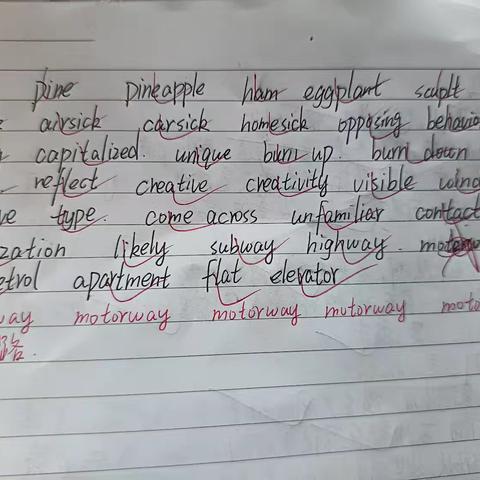 pine pineapple ham eggplant sculpt
airsick carsick homesick opposing behavio
capitalized. unique burn up. burn down
reflect creative creativity visible wind
type. come across unfamiliar contact
zation likely subway highway.
etrol apartment flat elevator
way motorway motorway motorway moto
路.